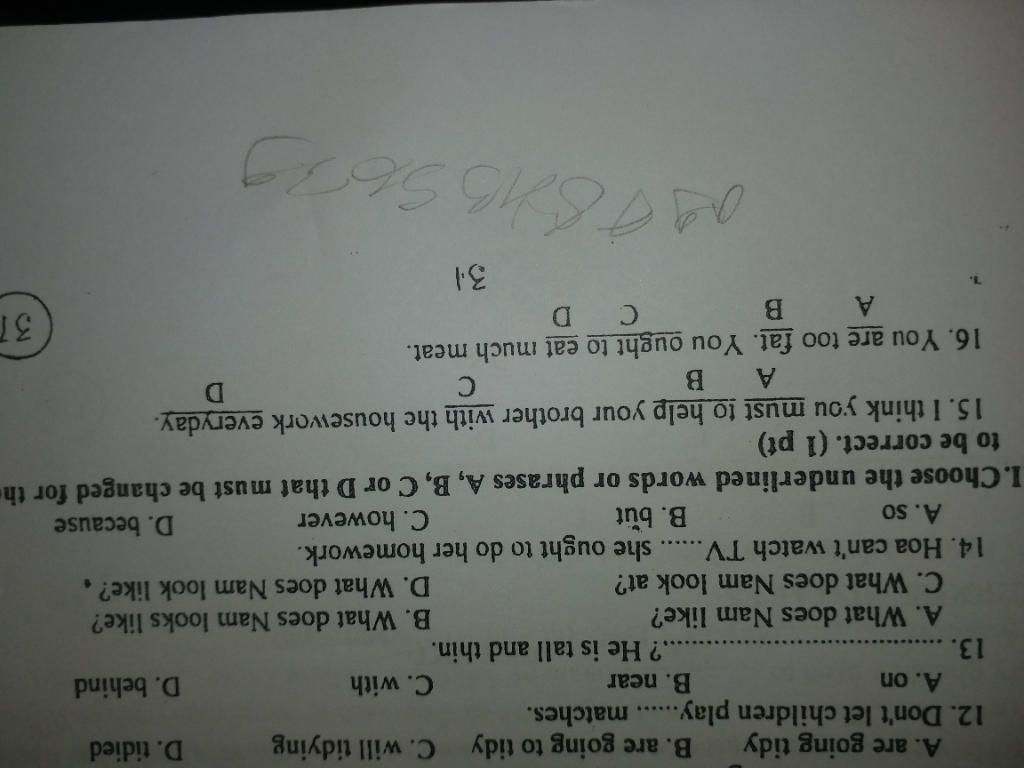 A. are going tidy B. are going to tidy C. will tidying D. tidied
12. Don't let children play...... matches.
A. on B. near C. with D. behind
13. ........................................? He is tall and thin.
A. What does Nam like? B. What does Nam looks like?
C. What does Nam look at? D. What does Nam look like?
14. Hoa can't watch TV...... she ought to do her homework.
A. so B. but C. however D. because
I.Choose the underlined words or phrases A, B, C or D that must be changed for the
to be correct. (1 pt)
15. I think you must to help your brother with the housework everyday.
A B C D
16. You are too fat. You ought to eat much meat.
A B C D
31